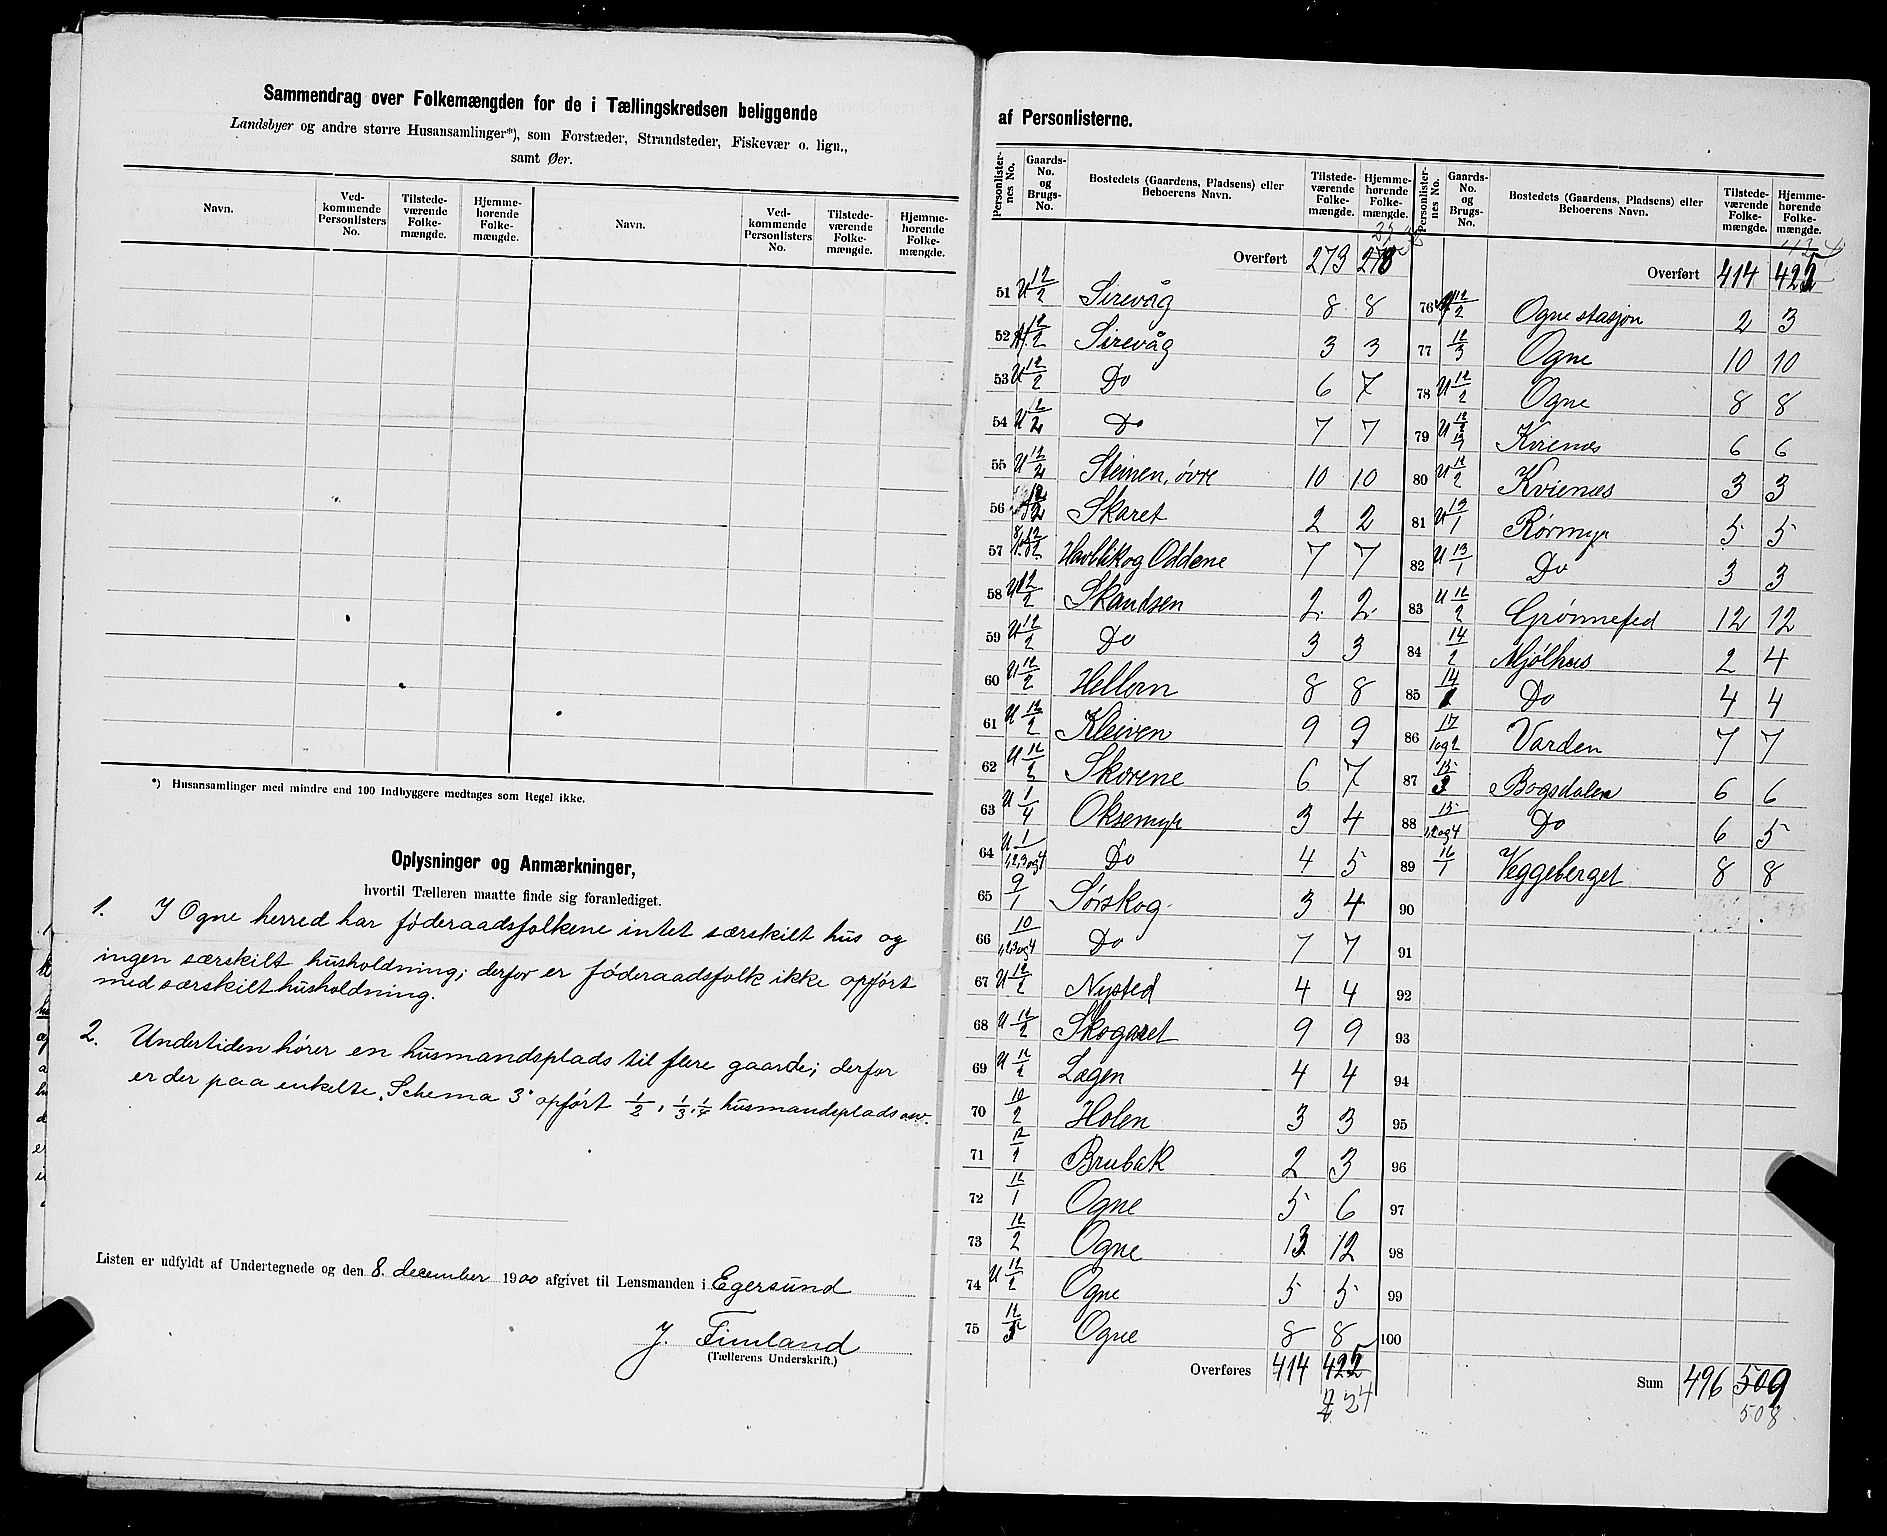 Sammendrag over Folkemængden for de i Tællingskredsen beliggende
Landsbyer og andre større Husansamlinger*), som Forstæder, Strandsteder, Fiskevær o. lign.,
samt Øer.
Navn. Ved-kommende Personlisters No. Tilstede-værende Folke-mængde. Hjemme-hørende Folke-mængde. Navn. Ved-kommende Personlisters No. Tilstede-værende Folke-mængde. Hjemme-hørende Folke-mængde.
*) Husansamlinger med mindre end 100 Indbyggere medtages som Regel ikke.
Oplysninger og Anmærkninger,
hvortil Tælleren maatte finde sig foranlediget.
1. I Ogne herred har føderaadsfolkene intet særskilt hus og
ingen særskilt husholdning; derfor er føderaadsfolk ikke opført
med særskilt husholdning.
2. Undertiden hører en husmandsplads til flere gaarde; derfor
er der paa enkelte „Schema 3" opført 1/2, 1/3, 1/4 husmandsplads osv.
Listen er udfyldt af Undertegnede og den 8. december 1900 afgivet til Lensmanden i Egersund
J. Fimland
(Tællerens Underskrift.)
af Personlisterne.
Personlister-nes No. Gaards-No. og Brugs-No. Bostedets (Gaardens, Pladsens) eller Beboerens Navn. Tilstede-værende Folke-mængde. Hjemme-hørende Folke-mængde.
Overført 273 278
51 U 12/2 Sirevåg 8 8
52 12/2 Sirevåg 3 3
53 U 12/2 Do 6 7
54 U 12/2 Do 7 7
55 U 12/2 Steinen, øvre 10 10
56 12/2 Skaret 2 2
57 12/2 Havblik og Oddene 7 7
58 U 12/2 Skandsen 2 2
59 U 12/2 Do 3 3
60 U 12/2 Hellern 8 8
61 U 12/2 Kleiven 9 9
62 U 12/3 Skorene 6 7
63 U 1/4 Oksemyr 3 4
64 U 1/1,2,3og4 Do 4 5
65 9/1 Sørskog 3 4
66 10/1,2,3og4 Do 7 7
67 U 12/2 Nysted 4 4
68 U 12/2 Skogaret 9 9
69 U 12/2 Lægen 4 4
70 10/2 Holen 3 3
71 12/2 Brubak 2 3
72 12/1 Ogne 5 6
73 12/2 Ogne 13 12
74 U 12/2 Ogne 5 5
75 12/3 Ogne 8 8
Overføres 414 425
424
Personlister-nes No. Gaards-No. og Brugs-No. Bostedets (Gaardens, Pladsens) eller Beboerens Navn. Tilstede-værende Folke-mængde. Hjemme-hørende Folke-mængde.
Overført 414 425
76 12/2 Ogne stasjon 2 3
77 12/3 Ogne 10 10
78 U 12/2 Ogne 8 8
79 U Kvienæs 6 6
80 U 12/2 Kvienæs 3 3
81 U 13/1 Rørmyr 5 5
82 U 13/1 Do 3 3
83 U 12/2 Grønnefed 12 12
84 14/2 Mjølhus 2 4
85 14/1 Do 4 4
86 17/1og2 Varden 7 7
87 15/3 Bogsdalen 6 6
88 15/1,2og4 Do 6 5
89 16/1 Veggeberget 8 8
90
91
92
93
94
95
96
97
98
99
100
Sum 496 509
508